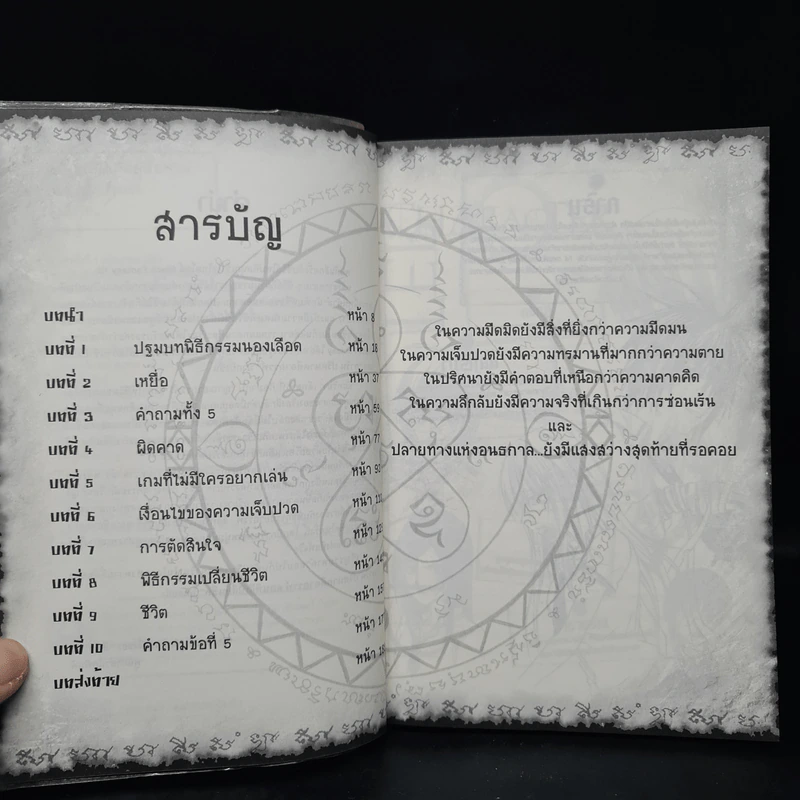 สารบัญ
บทนำ หน้า 8
บทที่ 1 ปฐมบทพิธีกรรมนองเลือด หน้า 18
บทที่ 2 เหยื่อ หน้า 37
บทที่ 3 คำถามทั้ง 5 หน้า 59
บทที่ 4 ผิดคาด หน้า 77
บทที่ 5 เกมที่ไม่มีใครอยากเล่น หน้า
บทที่ 6 เงื่อนไขของความเจ็บปวด หน้า
บทที่ 7 การตัดสินใจ หน้า
บทที่ 8 พิธีกรรมเปลี่ยนชีวิต หน้า
บทที่ 9 ชีวิต หน้า
บทที่ 10 คำถามข้อที่ 5 หน้า
บทส่งท้าย หน้า
ในความมืดมิดยังมีสิ่งที่ยิ่งกว่าความมืดมน
ในความเจ็บปวดยังมีความทรมานที่มากกว่าความตาย
ในปริศนายังมีคำตอบที่เหนือกว่าความคาดคิด
ในความลึกลับยังมีความจริงที่เกินกว่าการซ่อนเร้น
และ
ปลายทางแห่งอนธกาล...ยังมีแสงสว่างสุดท้ายที่รอคอย